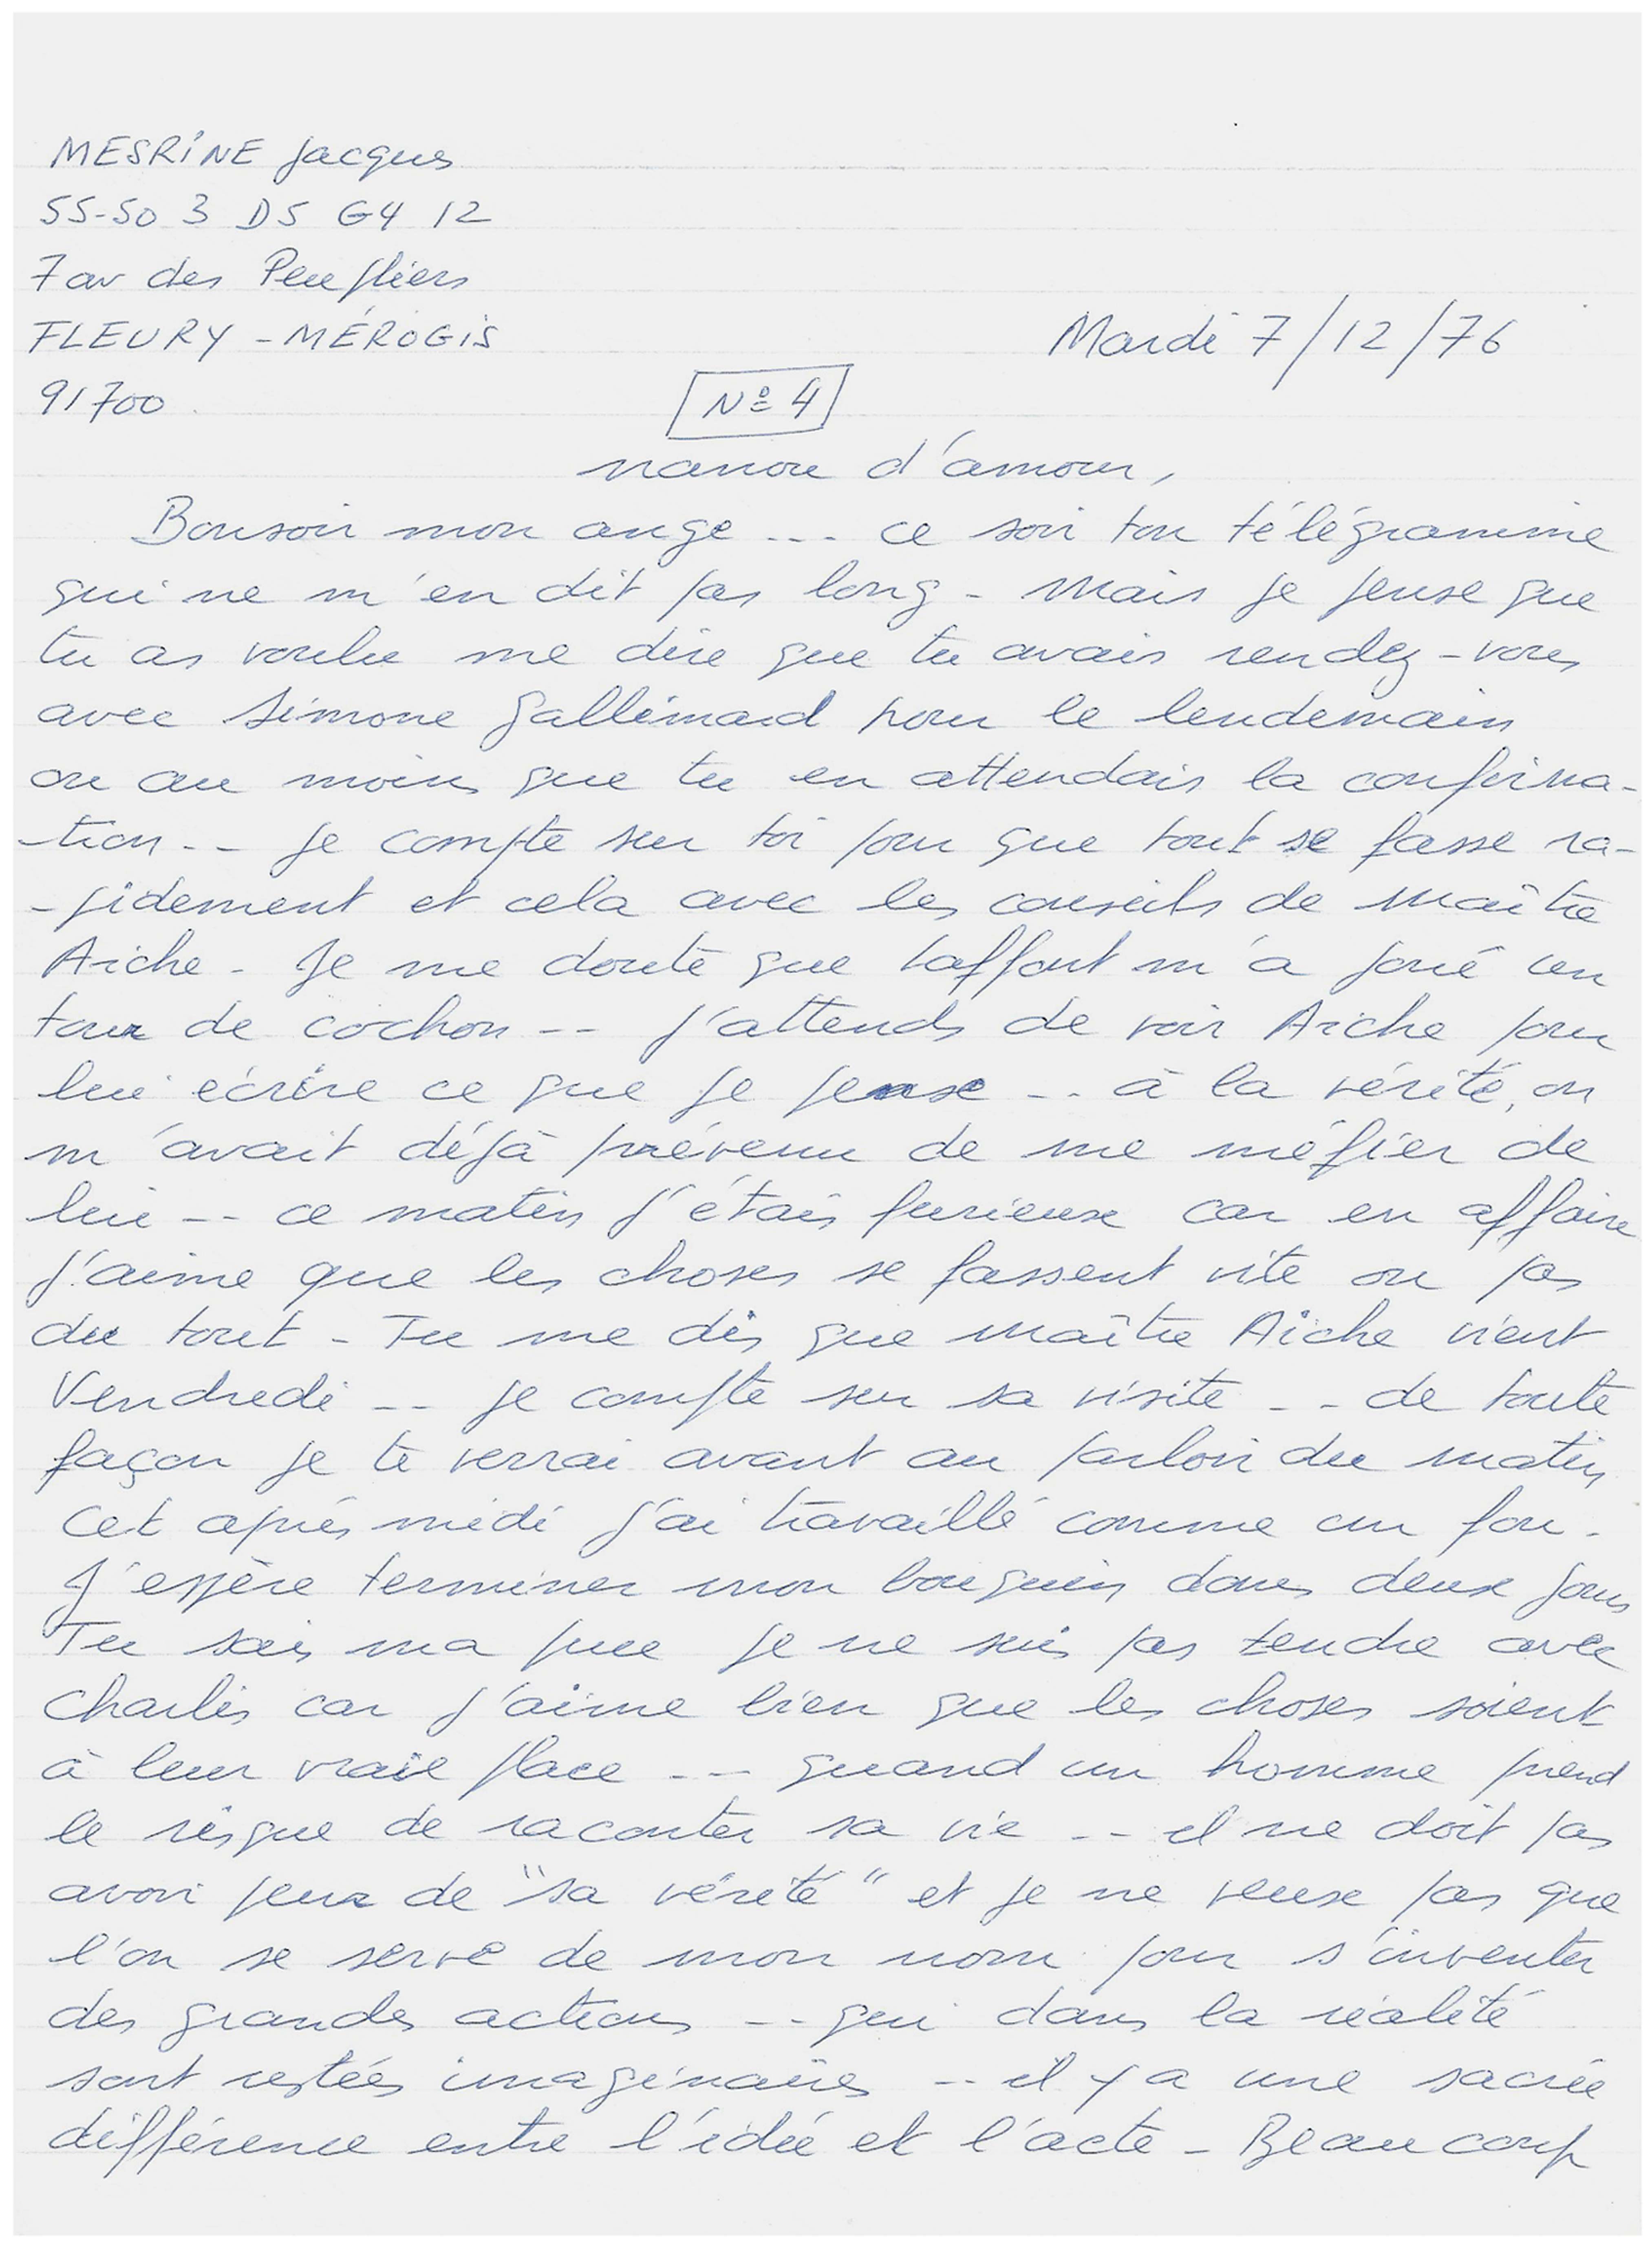 MESRINE Jacques
55-50 3 D5 G4 12
7 av des Peupliers
FLEURY - MÉROGIS
91700
Mardi 7/12/76
N° 4
nanou d'amour,
Bonsoir mon ange ... ce soir ton télégramme
qui ne m'en dit pas long - Mais je pense que
tu as voulu me dire que tu avais rendez-vous
avec Simone Gallimard pour le lendemain
ou au moins que tu en attendais la confirma-
-tion -- je compte sur toi pour que tout se fasse ra-
-pidement et cela avec les conseils de maître
Aiche - Je me doute que Laffont m'a joué un
tour de cochon -- j'attends de voir Aiche pour
lui écrire ce que je pense -- à la vérité, on
m'avait déjà prévenu de me méfier de
lui -- ce matin j'étais furieux car en affaire
j'aime que les choses se fassent vite ou pas
du tout - Tu me dis que maître Aiche vient
Vendredi -- je compte sur sa visite -- de toute
façon je te verrai avant au parloir du matin
Cet après midi j'ai travaillé comme un fou -
J'espère terminer mon bouquin dans deux jours
Tu sais ma puce je ne suis pas tendre avec
Charlie car j'aime bien que les choses soient
à leur vraie place -- quand un homme prend
le risque de raconter sa vie -- il ne doit pas
avoir peur de "sa vérité" et je ne veux pas que
l'on se serve de mon nom pour s'inventer
des grandes actions -- qui dans la réalité
sont restées imaginaires -- il y a une sacrée
différence entre l'idée et l'acte - Beaucoup